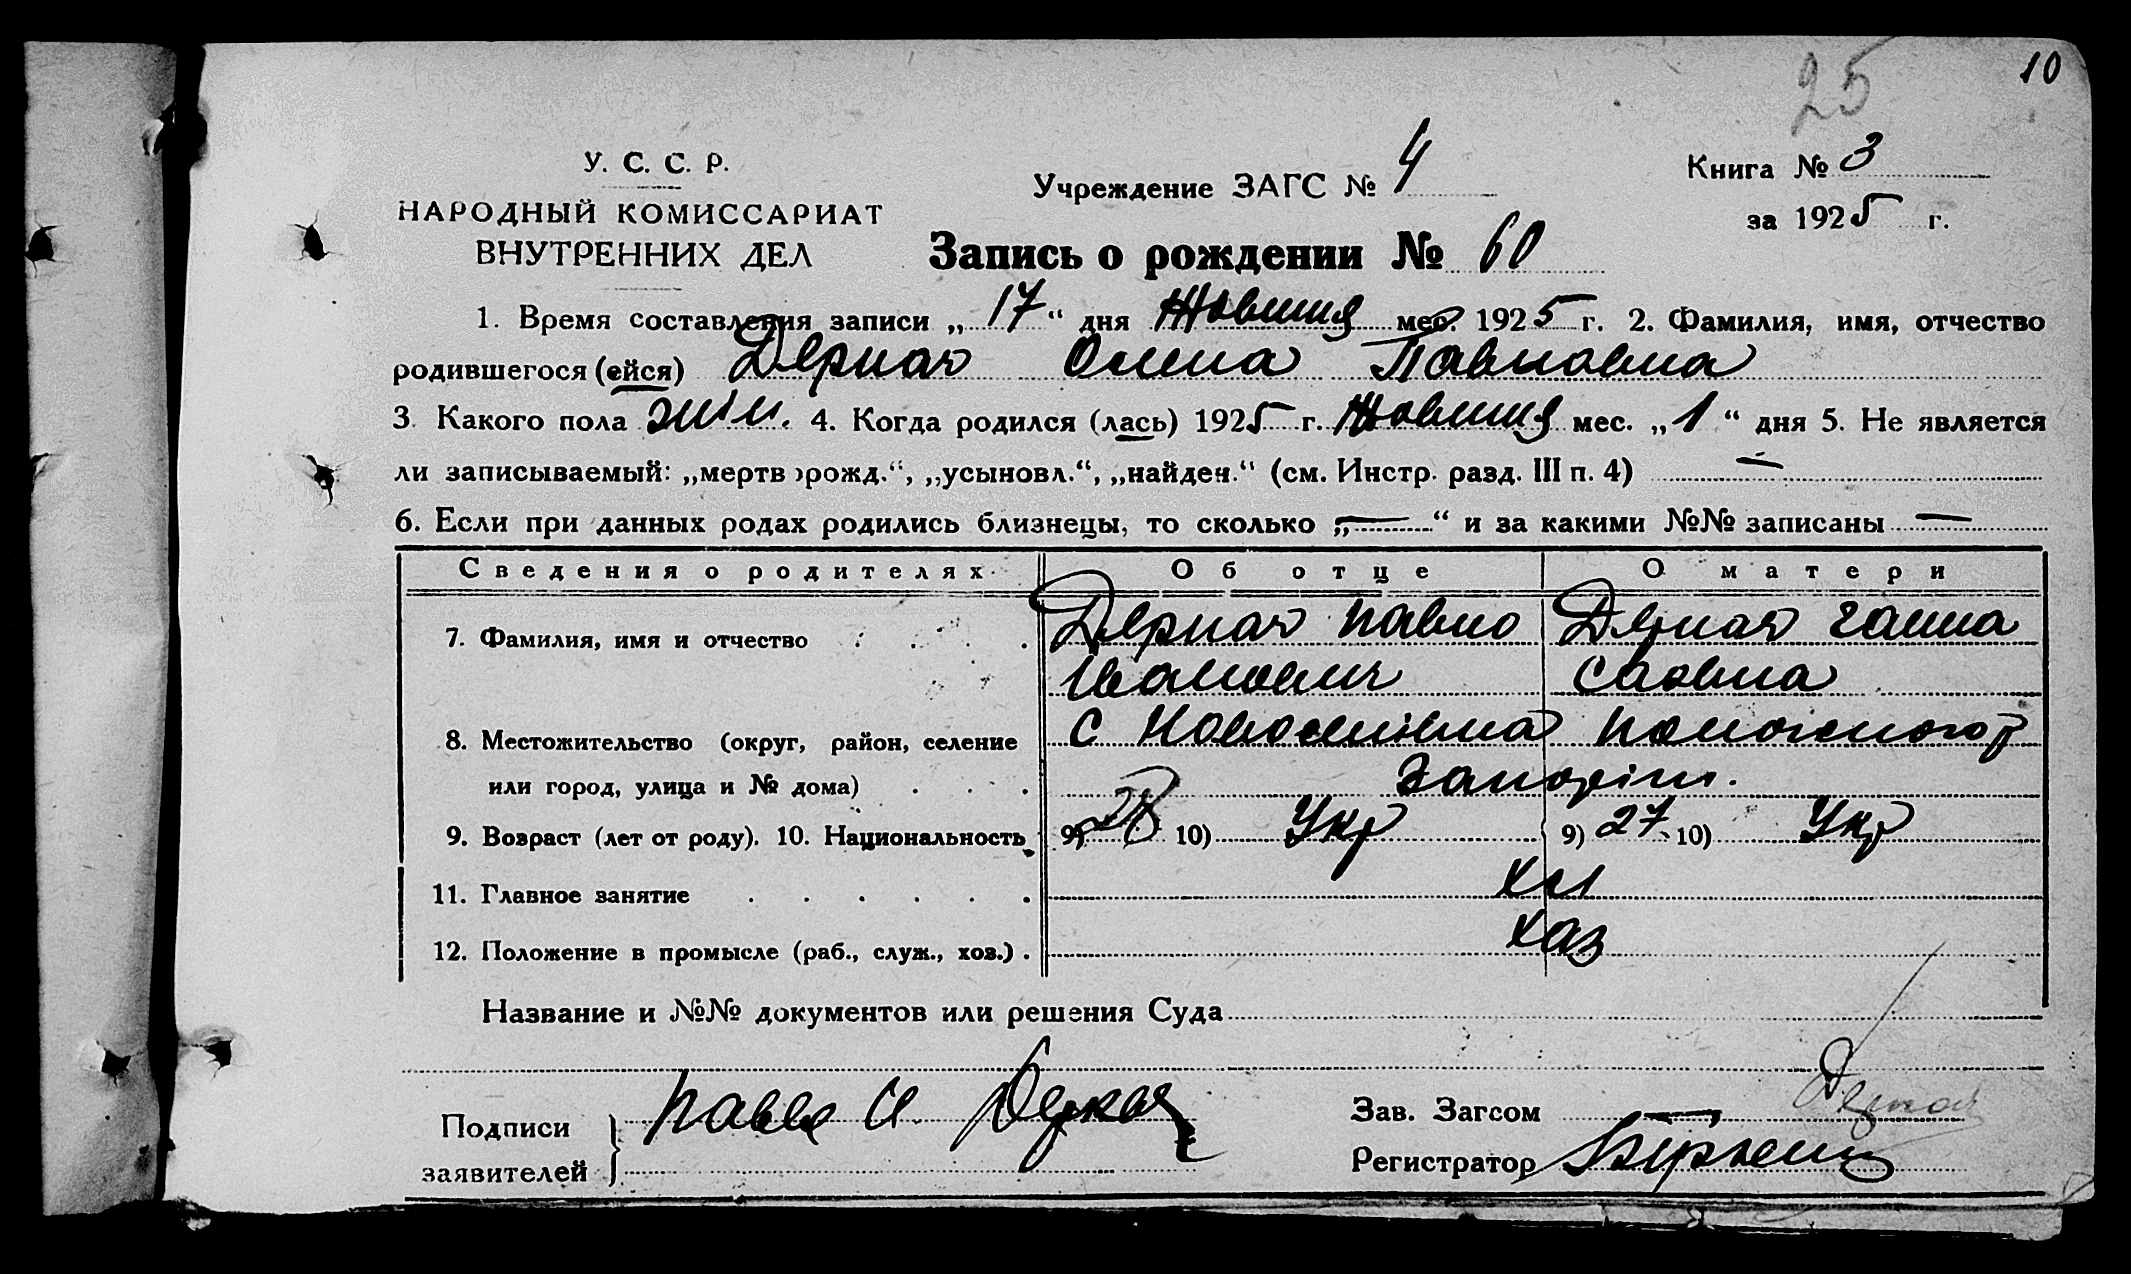 10
25
У. С. С. Р.
НАРОДНЫЙ КОМИССАРИАТ
ВНУТРЕННИХ ДЕЛ
Учреждение ЗАГС № 4
Книга № 3
за 1925 г.
Запись о рождении № 60
1. Время составления записи „ 17 “ дня Жовтня мес. 1925 г. 2. Фамилия, имя, отчество
родившегося (ейся) Деркач Олена Павловна
3. Какого пола жін. 4. Когда родился (лась) 1925 г. Жовтня мес. „ 1 “ дня 5. Не является
ли записываемый: „мертворожд.“, „усыновл.“, „найден.“ (см. Инстр. разд. III п. 4) —
6. Если при данных родах родились близнецы, то сколько „ — “ и за какими №№ записаны —
Сведения о родителях Об отце О матери
7. Фамилия, имя и отчество Деркач Павло Деркач Ганна
Иванович Саовна
8. Местожительство (округ, район, селение С Новоселівка
или город, улица и № дома) Запоріж.
9. Возраст (лет от роду). 10. Национальность 9) 28 10) Укр 9) 27 10) Укр
11. Главное занятие хл
12. Положение в промысле (раб., служ., хоз.) хаз
Название и №№ документов или решения Суда
Подписи
заявителей
Павел И Деркач
Зав. Загсом
Регистратор